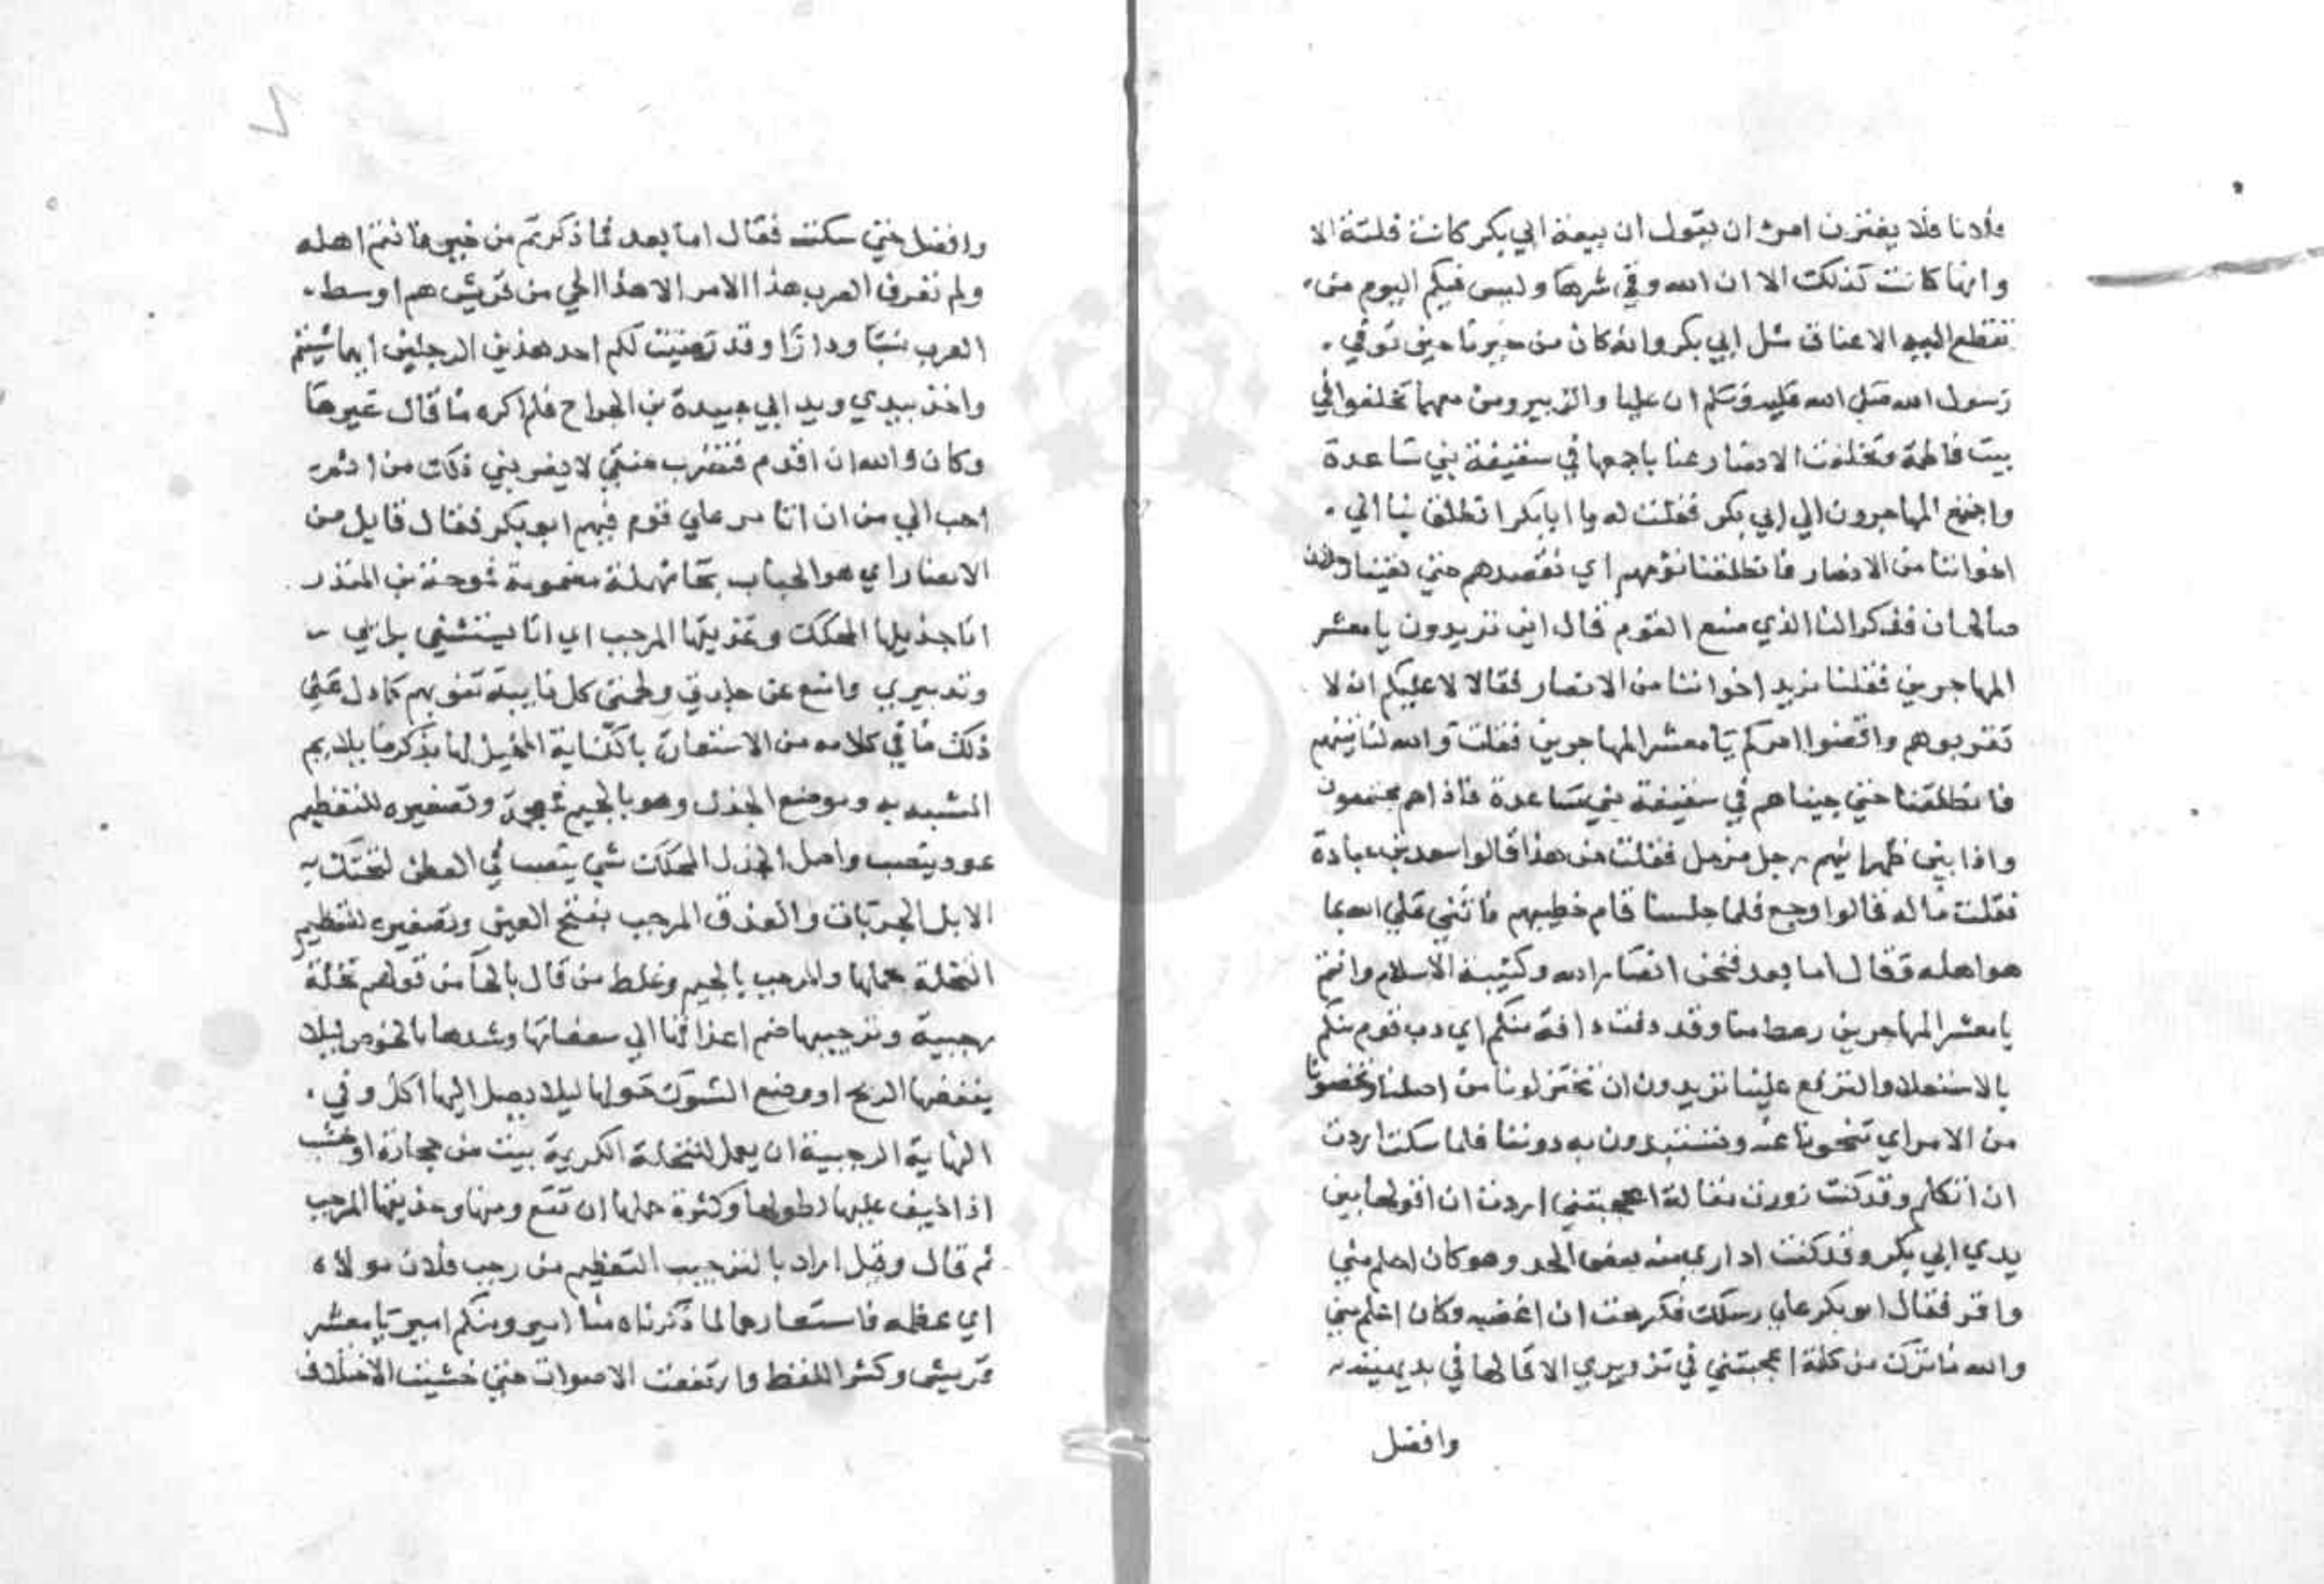 فلانا فلا يغترن امرؤ ان يقول ان بيعة ابي بكر كانت فلتة الا
وانها كانت كذلك الا ان الله وقي شرها وليس فيكم اليوم من
تقطع اليه الاعناق مثل ابي بكر وانه كان من خيرنا حين توفي
رسول الله صلي الله عليه وسلم ان عليا والزبير ومن معهما تخلفوا في
بيت فاطمة وتخلفت الانصار عنا باجمعها في سقيفة بني ساعدة
واجتمع المهاجرون الي ابي بكر فقلت له يا ابا بكر انطلق بنا الي
اخواننا من الانصار فانطلقنا نؤمهم اي نقصدهم حتي لقينا رجلان
صالحان فذكرا لنا الذي صنع القوم قال اين تريدون يا معشر
المهاجرين فقلنا نريد اخواننا من الانصار فقالا لا عليكم ان لا
تقربوهم واقضوا امركم يا معشر المهاجرين فقلت والله لناتينهم
فانطلقنا حتي جيناهم في سقيفة بني ساعدة فاذا هم مجتمعون
واذا بين ظهرانيهم رجل مزمل فقلت من هذا قالوا سعد بن عبادة
فقلت ما له قالوا وجع فلما جلسنا قام خطيبهم فاثني علي الله بما
هو اهله وقال اما بعد فنحن انصار الله وكتيبة الاسلام وانتم
يا معشر المهاجرين رهط منا وقد دفت دافة منكم اي دب قوم منكم
بالاستعلا والترفع علينا تريدون ان تختزلونا من اصلنا وتحضنونا
من الامر اي تنحونا عنه وتستبدون به دوننا فلما سكت اردت
ان اتكلم وقد كنت زورت مقالة اعجبتني اردت ان اقولها بين
يدي ابي بكر وقد كنت اداري منه بعض الحد وهو كان احلم مني
واقر فقال ابو بكر علي رسلك فكرهت ان اغضبه وكان اعلم مني
والله ما ترك من كلمة اعجبتني في تزويري الا قالها في بديهته
وافضل
٧
وافضل حتي سكت فقال اما بعد فما ذكرتم من خير فانتم اهله
ولم تعرف العرب هذا الامر الا هذا الحي من قريش هم اوسط
العرب نسبا ودارا وقد رضيت لكم احد هذين الرجلين ايهما شيتم
واخذ بيدي ويد ابي عبيدة بن الجراح فلم اكره مما قال غيرها
وكان والله ان اقدم فتضرب عنقي لا يقربني ذلك من اثم
احب الي من ان اتامر علي قوم فيهم ابو بكر فقال قايل من
الانصار اي هو الحباب بحا مهملة مضمومة فموحدة بن المنذر
انا جذيلها المحكك وعذيقها المرجب اي انا يستشفي براي
وتدبيري وامنع عن كل نايبة تنوبهم كما دل علي
ذلك ما في كلامه من الاستعارة بالكناية المخيل لها بذكر ما يلايم
المشبه به وموضع الجذل وهو بالجيم فمعجمة وتصغيره للتعظيم
عود ينصب واصل الجذل المحكك شي ينصب في العطن لتحتك به
الابل الجربات والعذق المرجب بفتح العين وتصغيره للتعظيم
النخلة بحملها والمرجب بالجيم وغلط من قال بالحا من قولهم نخلة
رجبية وترجيبها ضم اعذاقها الي سعفاتها وشدها بالخوص ليلا
ينفضها الريح او وضع الشوك حولها ليلا يصل اليها اكل وفي
النهاية الرجبية ان يعمل للنخلة الكريمة بيت من حجارة او خشب
اذا خيف عليها لطولها وكثرة حملها ان تقع ومنها وعذيقها المرجب
ثم قال وقيل اراد بالترجيب التعظيم من رجب فلان مولاه
اي عظمه فاستعارهما لما ذكرناه منا امير ومنكم امير يا معشر
قريش وكثر اللغط وارتفعت الاصوات حتي خشيت الاختلاف